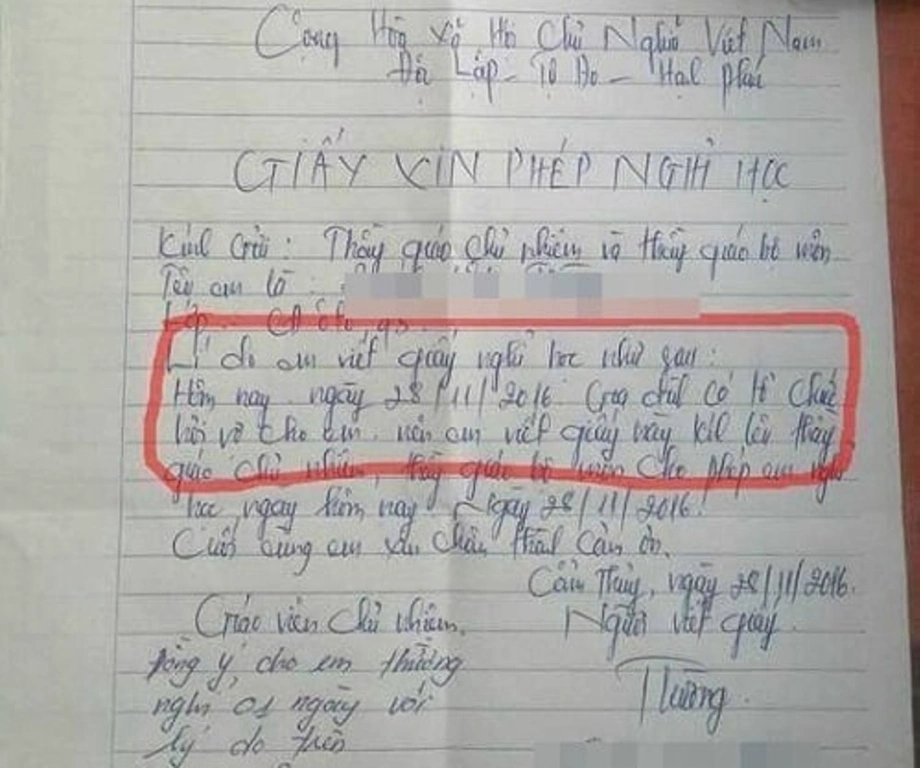 Cộng Hòa Xã Hội Chủ Nghĩa Việt Nam
Độc Lập - Tự Do - Hạnh phúc
GIẤY XIN PHÉP NGHỈ HỌC
Kính Gửi: Thầy giáo chủ nhiệm và thầy giáo bộ môn
Tên em là:
Lớp: CĐ ôtô
Lí do em viết giấy nghỉ học như sau:
Hôm nay ngày 28/11/2016. Gia đình có tổ chức
hỏi vợ cho em. nên em viết giấy này kính lên thầy
giáo chủ nhiệm, thầy giáo bộ môn cho phép em nghỉ
học ngày hôm nay Ngày 28/11/2016.
Cuối cùng em xin chân thành cảm ơn.
Cẩm Thủy, ngày 28/11/2016.
Giáo viên chủ nhiệm.
Người viết giấy
Đồng ý, cho em thưởng
nghỉ 01 ngày với
lý do trên
Thưởng